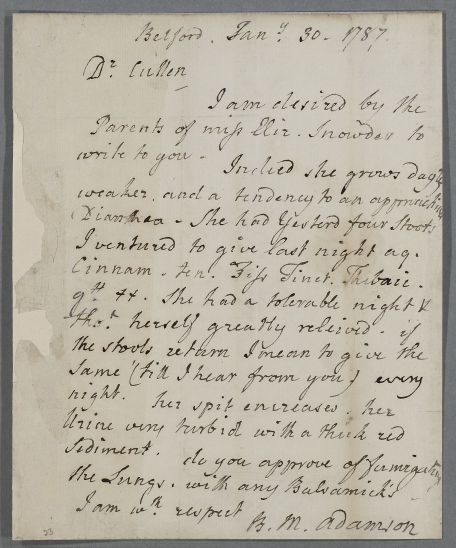 Belford. Jany. 30. 1787.
Dr. Cullen
I am desired by the
Parents of miss Eliz. Snowdon to
write to you.
Indeed she grows dayly
weaker. and a tendency to an approaching
Diarrhea. She had Yesterd four Stools
I ventured to give last night aq.
Cinnam. ten. Tinct. Thebaic.
gtt xx. She had a tolerable night &
thot. herself greatly releived. if
the stools return I mean to give the
Same (till I hear from you) every
night. her spit encreases. her
Urine very turbid with a thick red
Sediment. do you approve of fumigating
the Lungs. with any Balsamick's
I am wth respect
B. M. Adamson